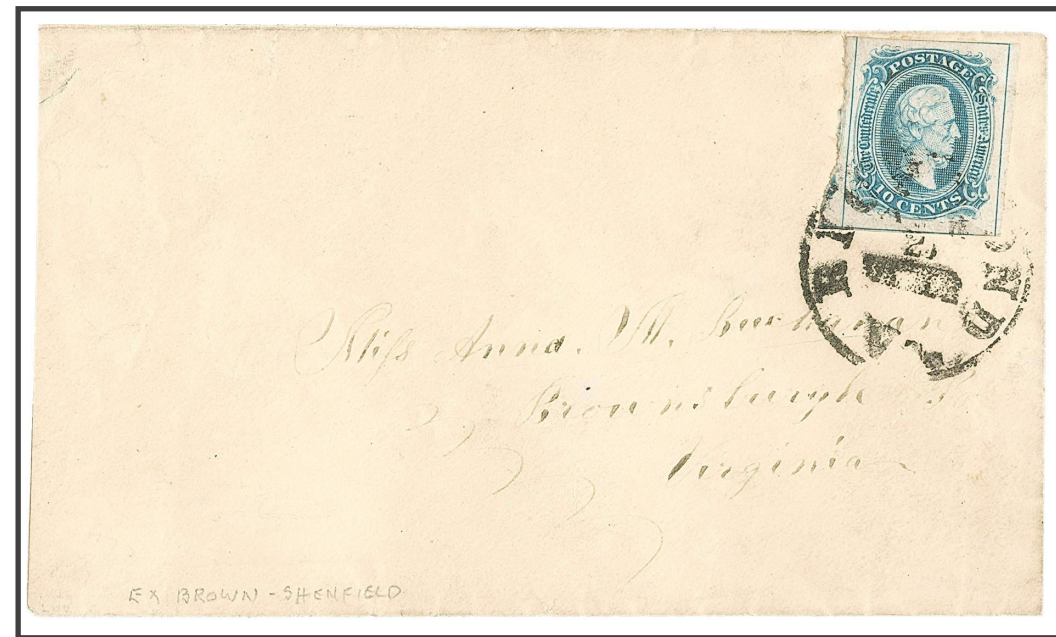 POSTAGE
The Confederate States of America
10 CENTS
RICHMOND VA
Miss Anna. M. Buchanan
Brownsburgh
Virginia
EX BROWN - SHENFIELD